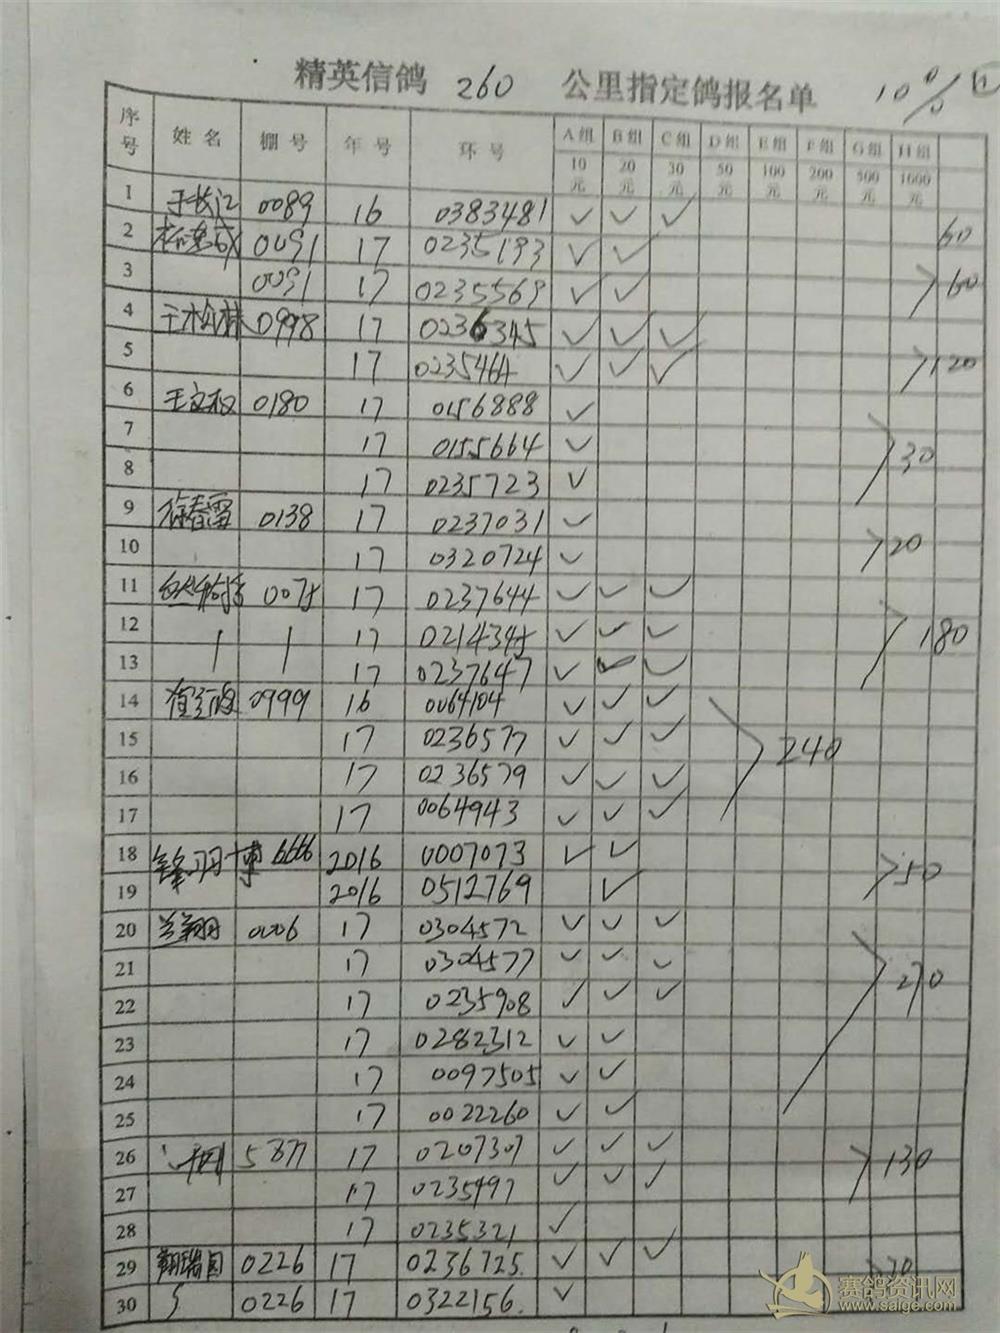 精英信鸽 260 公里指定鸽报名单 10%
序号 姓名 棚号 年号 环号 A组 B组 C组 D组 E组 F组 G组 H组
10元 20元 30元 50元 100元 200元 500元 1000元
1 于长江 0089 16 0383481 ✓ ✓ ✓ 60
2 0091 17 0235193 ✓ ✓
3 0091 17 0235569 ✓ ✓ 60
4 0998 17 0236345 ✓ ✓ ✓
5 17 0235464 ✓ ✓ ✓ 120
6 王文权 0180 17 0156888 ✓
7 17 0155664 ✓ 30
8 17 0235723 ✓
9 徐春雷 0138 17 0237031 ✓
10 17 0320724 ✓ 20
11 17 0237644 ✓ ✓ ✓
12 17 ✓ ✓ ✓ 180
13 17 0237647 ✓ ✓ ✓
14 0999 16 0064104 ✓ ✓ ✓
15 17 0236577 ✓ ✓ ✓ 240
16 17 0236579 ✓ ✓ ✓
17 17 0064943 ✓ ✓ ✓
18 6666 2016 0007073 ✓ ✓
19 2016 0512769 ✓ 50
20 0006 17 0304572 ✓ ✓ ✓
21 17 0304577 ✓ ✓ ✓ 270
22 17 0235908 ✓ ✓ ✓
23 17 0282312 ✓ ✓
24 17 0097505 ✓ ✓
25 17 0022260 ✓ ✓
26 5877 17 0207307 ✓ ✓ ✓ 130
27 17 0235497 ✓ ✓ ✓
28 17 0235321 ✓
29 0226 17 0236725. ✓ ✓ ✓ 70
30 0226 17 0322156. ✓
赛鸽资讯网
www.saige.com